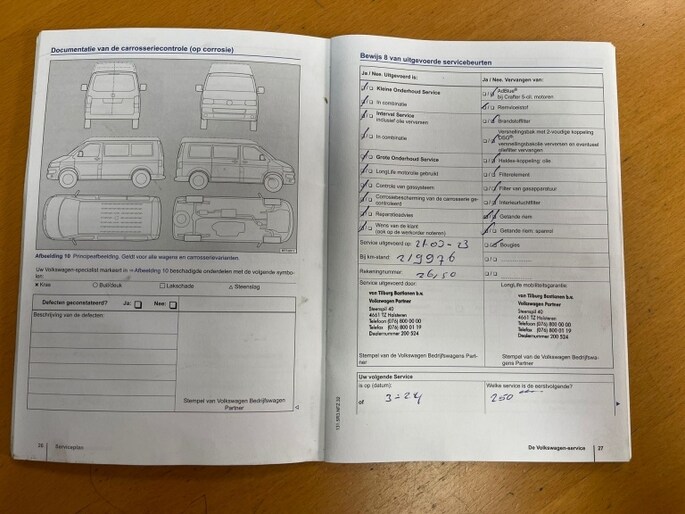 Documentatie van de carrosseriecontrole (op corrosie)
Afbeelding 10 Principeafbeelding. Geldt voor alle wagens en carrosserievarianten.
Uw Volkswagen-specialist markeert in ⇒ Afbeelding 10 beschadigde onderdelen met de volgende symbo-
len:
× Kras ○ Buil/deuk □ Lakschade △ Steenslag
Defecten geconstateerd? Ja: □ Nee: □
Beschrijving van de defecten:
Stempel van Volkswagen Bedrijfswagen
Partner
26 Serviceplan
Bewijs 8 van uitgevoerde servicebeurten
Ja / Nee. Uitgevoerd is:
Kleine Onderhoud Service
In combinatie
Interval Service
inclusief olie verversen
In combinatie
Grote Onderhoud Service
LongLife motorolie gebruikt
Controle van gassysteem
Corrosiebescherming van de carrosserie ge-
controleerd
Reparatieadvies
Wens van de klant
(ook op de werkorder noteren)
Ja / Nee. Vervangen van:
AdBlue®
bij Crafter 5-cil. motoren
Remvloeistof
Brandstoffilter
Versnellingsbak met 2-voudige koppeling
DSG®:
versnellingsbakolie verversen en eventueel
oliefilter vervangen
Haldex-koppeling: olie
Filterelement
Filter van gasapparatuur
Interieurluchtfilter
Getande riem
Getande riem: spanrol
Bougies
Service uitgevoerd op: 21-03-23
Bij km-stand: 219976
Rekeningnummer: 2650
Service uitgevoerd door:
van Tilburg Bastianen b.v.
Volkswagen Partner
Steenspil 40
4661 TZ Halsteren
Telefoon (076) 800 00 00
Telefax (076) 800 01 19
Dealernummer 200 524
Stempel van de Volkswagen Bedrijfswagens Part-
ner
LongLife mobiliteitsgarantie:
van Tilburg Bastianen b.v.
Volkswagen Partner
Steenspil 40
4661 TZ Halsteren
Telefoon (076) 800 00 00
Telefax (076) 800 01 19
Dealernummer 200 524
Stempel van de Volkswagen Bedrijfswa-
gens Partner
Uw volgende Service
is op (datum):
of 3-24
Welke service is de eerstvolgende?
250
De Volkswagen-service 27